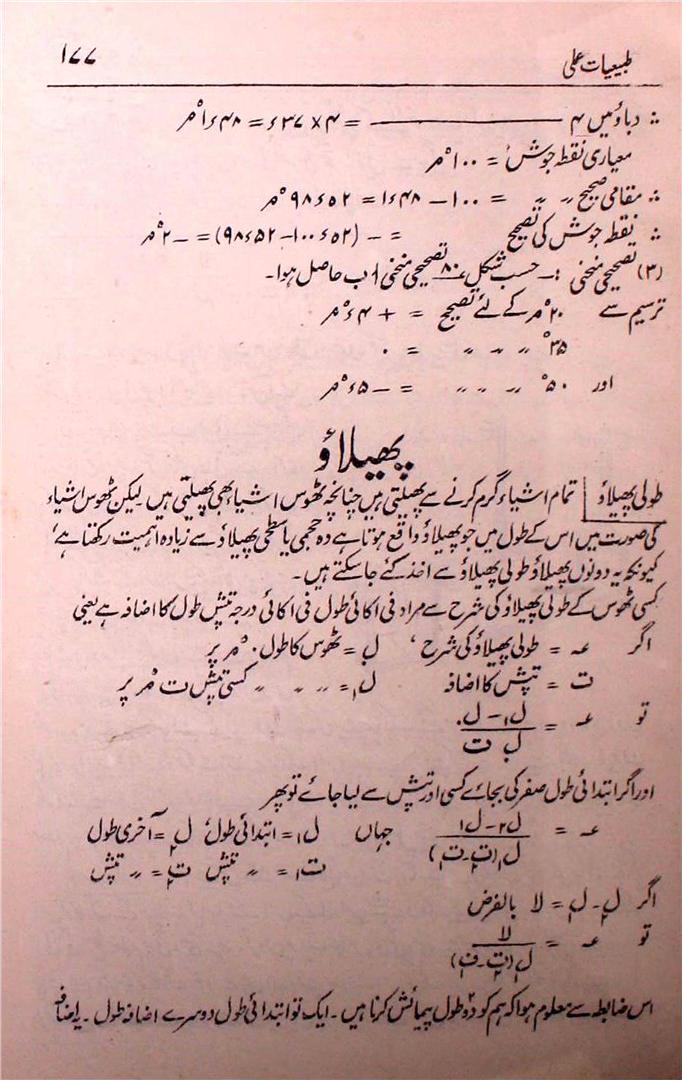 طبیعیات عملی ۱۷۷
∴ دباؤ میں ۴ ——— = ۴ × ۳۷ء = ۴۸ء۱ °م
معیاری نقطہ جوش = ۱۰۰ °م
∴ مقامی صحیح 〃 〃 = ۱۰۰ − ۴۸ء۱ = ۵۲ء۹۸ °م
∴ نقطہ جوش کی تصحیح = − (۵۲ء۱۰۰ − ۵۲ء۹۸) = − ۲ °م
(۳) تصحیحی منحنی :۔ حسب شکل ۸۰ تصحیحی منحنی ا ب حاصل ہوا۔
ترسیم سے ۲۰ °م کے لئے تصحیح = + ۴ء °م
۳۵° 〃 〃 〃 = ۰
اور ۵۰° 〃 〃 〃 = − ۵ء °م
پھیلاؤ
طولی پھیلاؤ | تمام اشیاء گرم کرنے سے پھیلتی ہیں چنانچہ ٹھوس اشیاء بھی پھیلتی ہیں۔ لیکن ٹھوس اشیاء
کی صورت میں اس کے طول میں جو پھیلاؤ واقع ہوتا ہے وہ حجمی یا سطحی پھیلاؤ سے زیادہ اہمیت رکھتا ہے،
کیونکہ یہ دونوں پھیلاؤ طولی پھیلاؤ سے اخذ کئے جاسکتے ہیں۔
کسی ٹھوس کے طولی پھیلاؤ کی شرح سے مراد فی اکائی طول فی اکائی درجہ تپش طول کا اضافہ ہے یعنی
اگر عہ = طولی پھیلاؤ کی شرح ، ل. = ٹھوس کا طول ۰ °م پر
ت = تپش کا اضافہ ل۱ = 〃 〃 〃 کسی تپش ت °م پر
تو عہ = (ل۱ − ل.) / (ل. ت)
اور اگر ابتدائی طول صفر کی بجائے کسی اور تپش سے لیا جائے تو پھر
عہ = (ل۲ − ل۱) / ل۱ (ت۲ − ت۱) جہاں ل۱ = ابتدائی طول، ل۲ = آخری طول
ت۱ = 〃 تپش ت۲ = 〃 تپش
اگر ل۲ − ل۱ = لا بالفرض
تو عہ = لا / ل۱ (ت۲ − ت۱)
اس ضابطہ سے معلوم ہوا کہ ہم کو دو طول پیمائش کرنا ہیں۔ ایک تو ابتدائی طول دوسرے اضافہ طول۔ یہ اضافہ